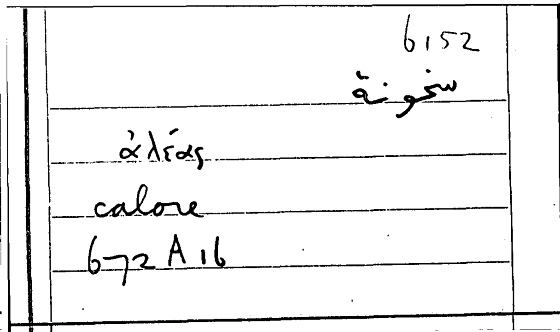 6152
سخونة
ἀλέας
calore
672 A 16